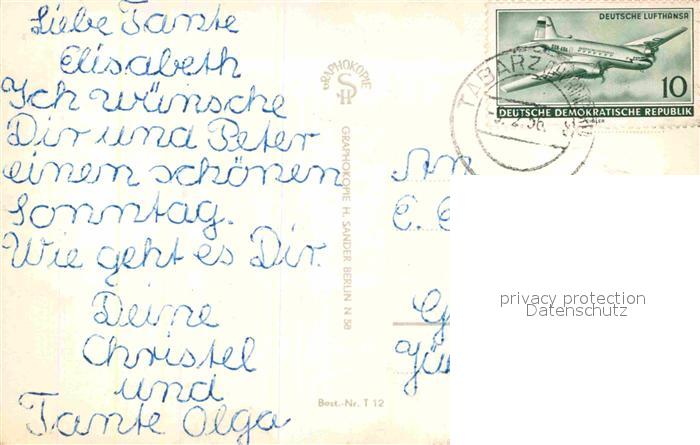 Liebe Tante
Elisabeth
Ich wünsche
Dir und Peter
einen schönen
Sonntag.
Wie geht es Dir.
Deine
Christel
und
Tante Olga
GRAPHOKOPIE
GRAPHOKOPIE H. SANDER BERLIN N 58
Best.-Nr. T 12
DEUTSCHE LUFTHANSA
10
DEUTSCHE DEMOKRATISCHE REPUBLIK
TABARZ
2. 56
An
E.
privacy protection
Datenschutz